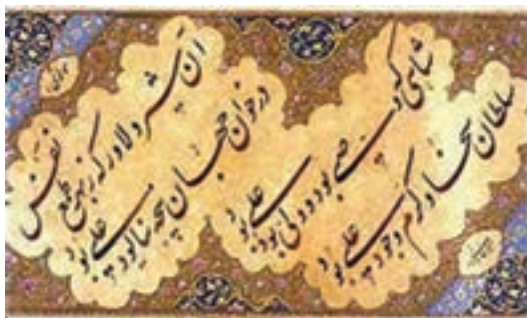 شاهی که وصی بود و ولی بود علی بود
سلطان سخا و کرم و جود علی بود
آن شیر دلاور که ز بهر طمع نفس
در خوان جهان پنجه نیالود علی بود